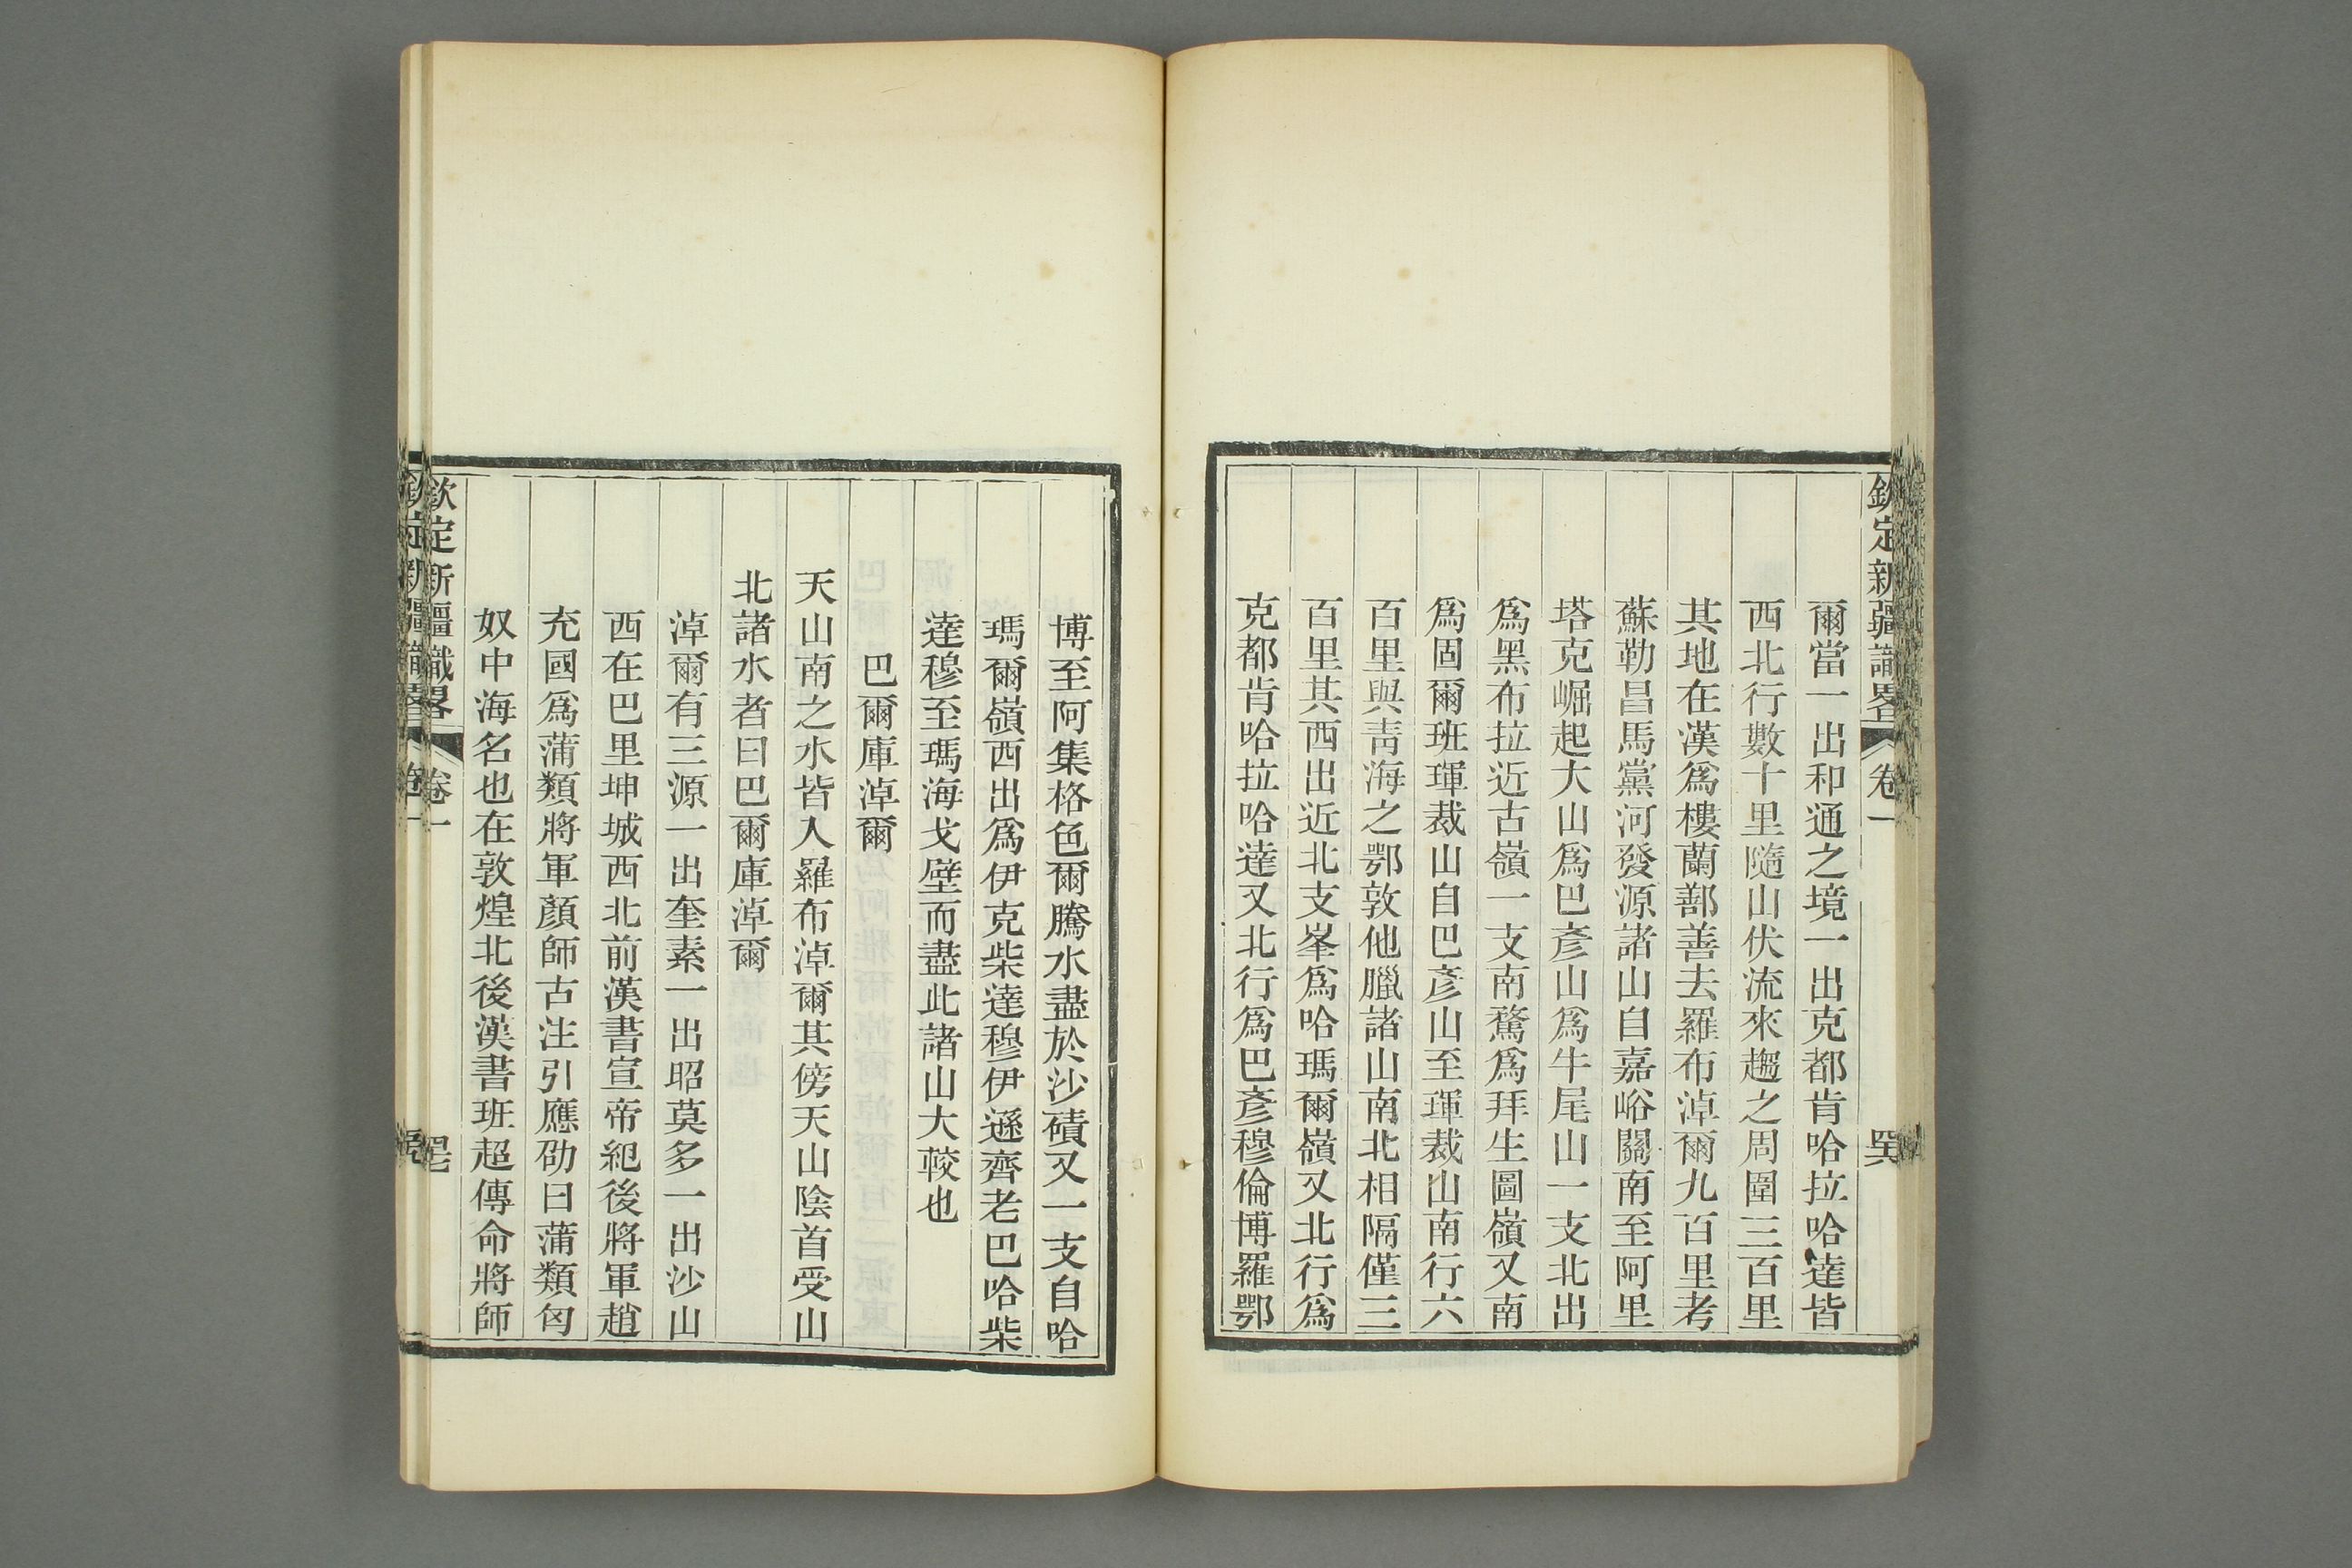 欽定新疆識畧 卷一 吴
爾當一出和通之境一出克都肯哈拉哈達皆
西北行數十里隨山伏流來趨之周圍三百里
其地在漢爲樓蘭鄯善去羅布淖爾九百里考
蘇勒昌馬黨河發源諸山自嘉峪關南至阿里
塔克崛起大山爲巴彥山爲牛尾山一支北出
爲黑布拉近古嶺一支南騖爲拜生圖嶺又南
爲固爾班琿裁山自巴彥山至琿裁山南行六
百里與靑海之鄂敦他臘諸山南北相隔僅三
百里其西出近北支峯爲哈瑪爾嶺又北行爲
克都肯哈拉哈達又北行爲巴彥穆倫博羅鄂
博至阿集格色爾騰水盡於沙磧又一支自哈
瑪爾嶺西出爲伊克柴達穆伊遜齊老巴哈柴
達穆至瑪海戈壁而盡此諸山大較也
巴爾庫淖爾
天山南之水皆入羅布淖爾其傍天山陰首受山
北諸水者曰巴爾庫淖爾
淖爾有三源一出奎素一出昭莫多一出沙山
西在巴里坤城西北前漢書宣帝紀後將軍趙
充國爲蒲類將軍顏師古注引應劭曰蒲類匈
奴中海名也在敦煌北後漢書班超傳命將師
欽定新疆識畧 卷一